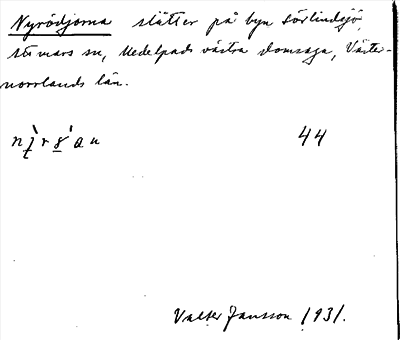 Nyrödjorna slåtter på byn Sörlindsjö,
Stö mars sn, Medelpads västra domsaga, Väster-
norrlands län.
44
Valter Jansson 1931.